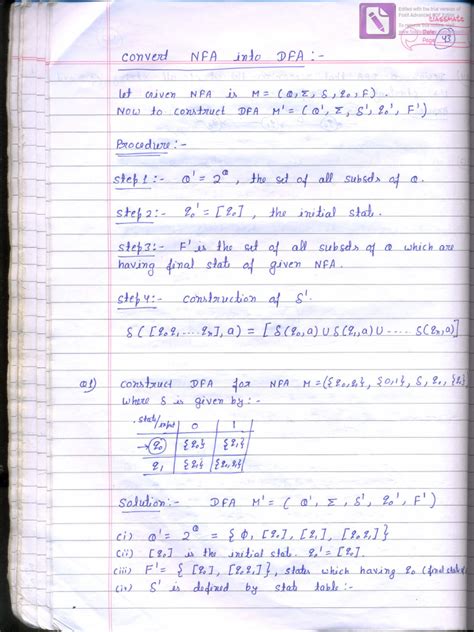 Edited with the trial version of
Foxit Advanced PDF Editor
classmate
Date
Page 43
Convert NFA into DFA :-
Let Given NFA is M = (Q, Σ, δ, q0, F).
Now to construct DFA M' = (Q', Σ, δ', q0', F')
Procedure :-
Step 1 :- Q' = 2^Q, the set of all subsets of Q.
Step 2 :- q0' = [q0], the initial state.
Step 3 :- F' is the set of all subsets of Q which are
having final state of given NFA.
Step 4 :- construction of δ'.
δ([q0q1 .... qn], a) = [δ(q0,a) ∪ δ(q1,a) ∪ ----- δ(qn,a)]
Q1) construct DFA for NFA M = ({q0,q1}, {0,1}, δ, q0, {q0}
where δ is given by :-
State/input 0 1
→q0 {q0} {q1}
q1 {q1} {q0,q1}
Solution :- DFA M' = (Q', Σ, δ', q0', F')
(i) Q' = 2^Q = {ϕ, [q0], [q1], [q0q1]}
(ii) [q0] is the initial state. q0' = [q0].
(iii) F' = {[q0], [q0q1]}, states which having q0 (final state
(iv) δ' is defined by state table :-